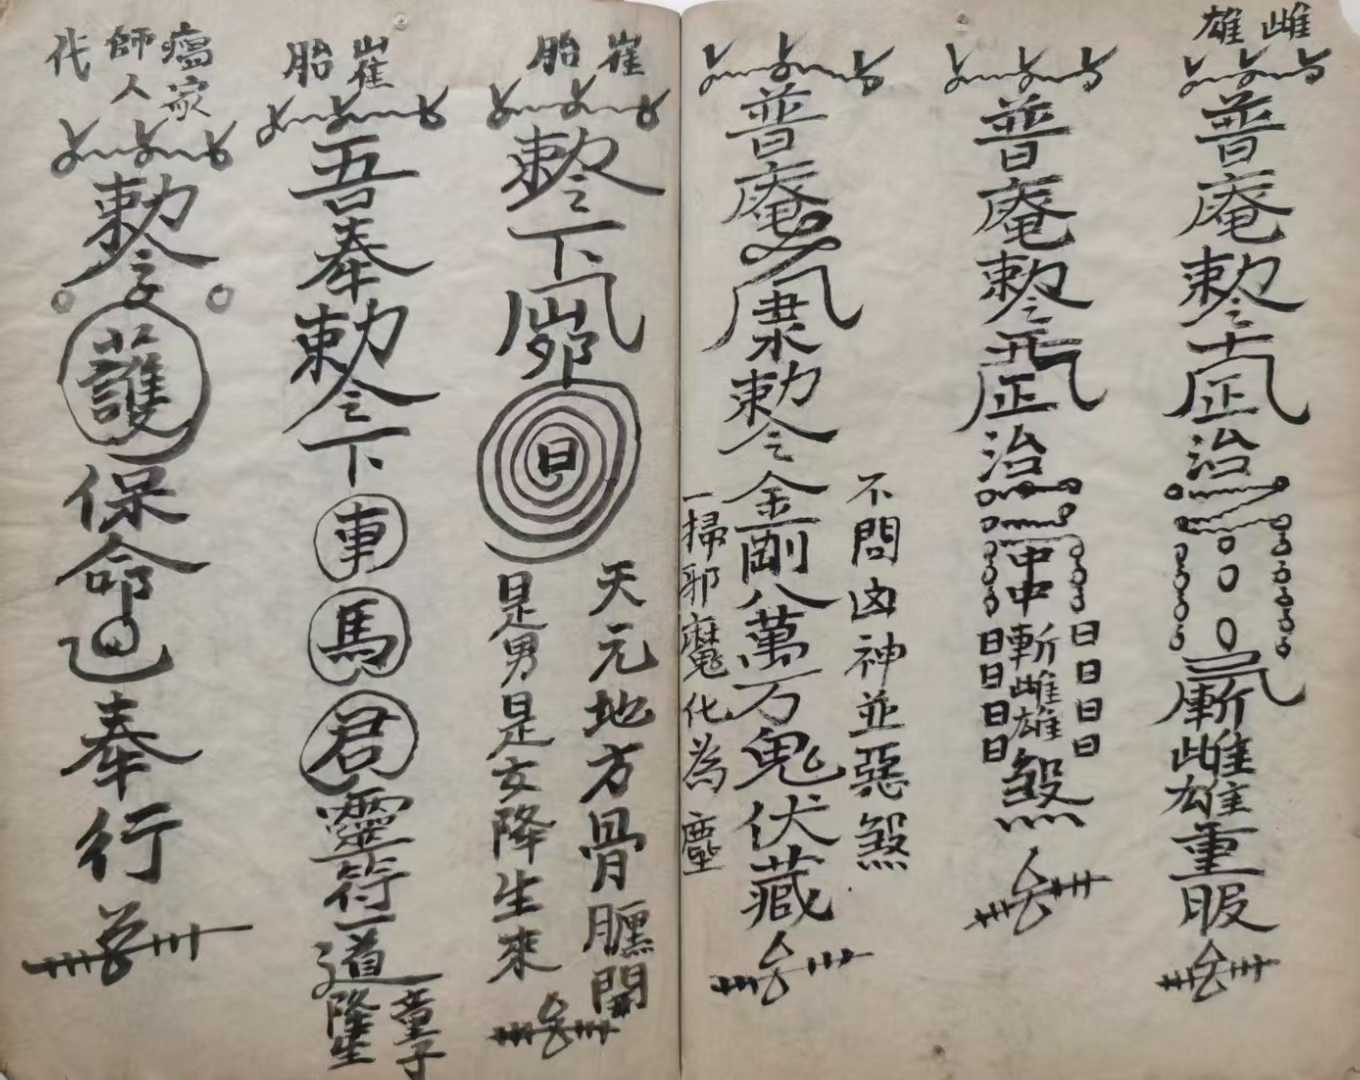 雌雄
普庵敕令
正
治
斬雌雄重
普庵敕令
正
治
中中
日日日日
斬雌雄煞
日日日日
普庵
敕令金剛八萬方鬼伏藏
不問凶神並惡煞
一掃邪魔化為塵
崔胎
敕令下
日
天元地方骨 開
是男是女降生來
崔胎
吾奉敕令下車馬君靈符一道
童子降生
瘟家師人代
敕令
護
保命
奉行